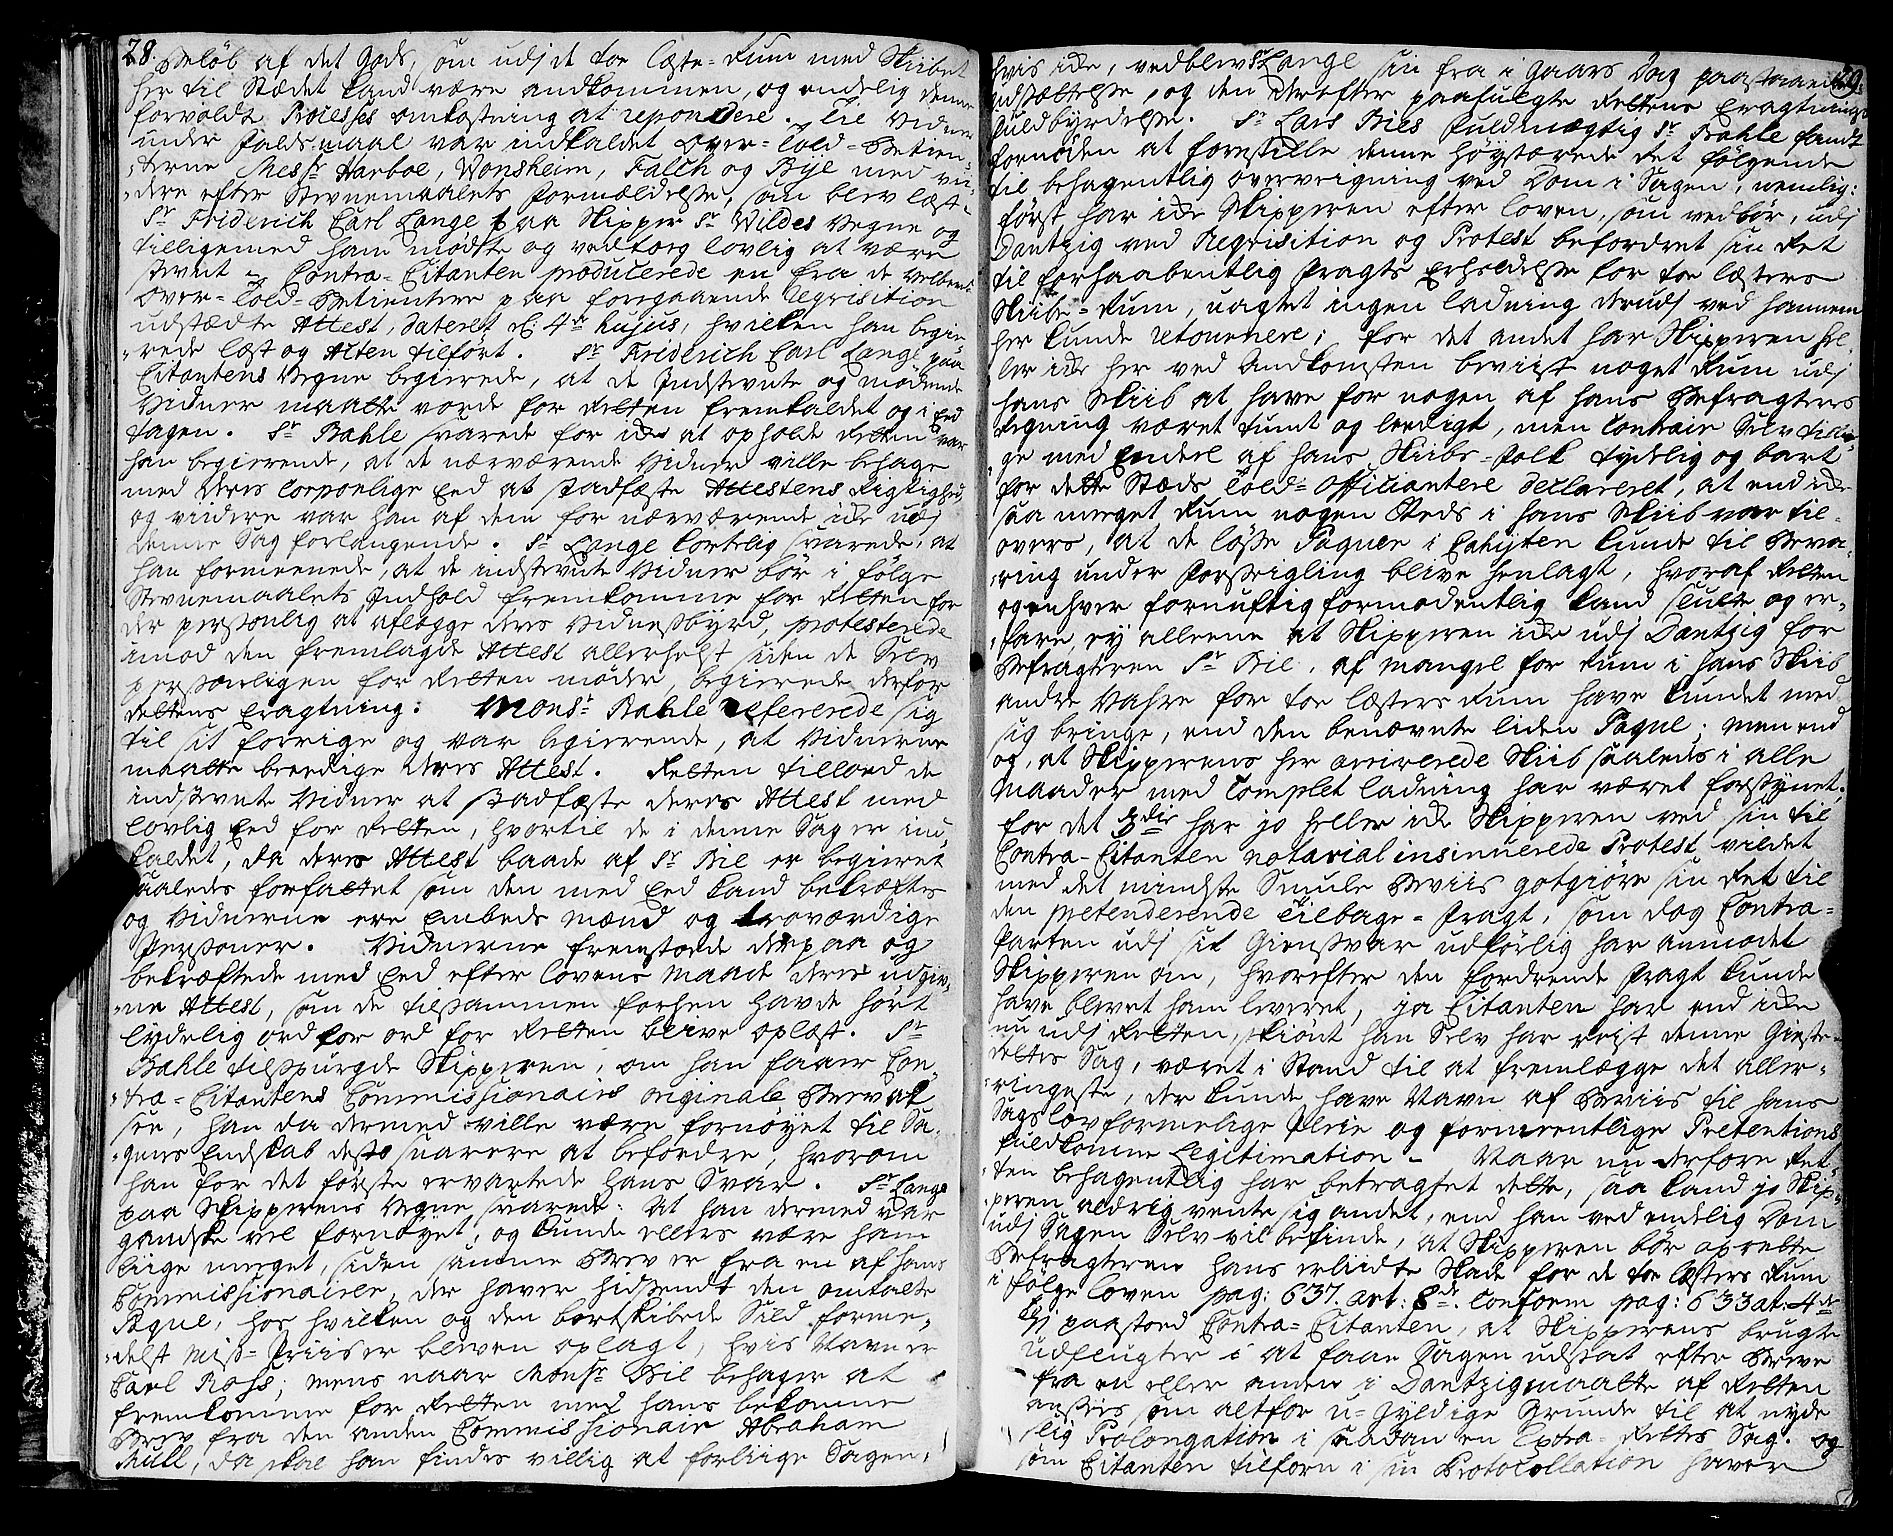 28.
Beløb af det Gods, som udj de toe Læste-Rum med Skibet
her til Stædet kand være andkommen, og endelig denne
forvoldte Processes omkostning at repondere. Til Vidner
under Falds-maal var indkaldet Over-Told-Betien-
terne Mess.rs Harboe, Wonsheim, Falch og Bye med vi-
dere efter Stevnemaalets formældelse, som blev læst.
S.r Friderich Carl Lange paa Skipper S.r Wildes Vegne og
tilligemed ham mødte og vedtoeg lovlig at være
stevnt. Contra-Citanten producerede en fra de velbemte
Over-Told-Betientere paa foregaaende Reqvisition
udstædte Attest, dateret d: 4de hujus, hvilken han begie-
rede læst og Acten tilført. S.r Friderich Carl Lange paa
Citantens Vegne begierede, at de Indstevnte og mødende
Vidner maatte vorde for Retten fremkaldet og i Eed
tagen. S.r Bahle svarede for ikke at opholde Retten var
han begierende, at de nærværende Vidner ville behage
med deres corporlige Eed at stadfæste Attestens Rigtighed,
og viidere var han af dem for nærværende ikke udj
denne Sag forlangende. S.r Lange kortelig svarede, at
han formeenede, at de indstevnte Vidner bør i følge
Stevnemaalets Indhold fremkomme for Retten for
der personlig at aflægge deres Vidnesbyrd, protesterede
imod den fremlagde Attest allerhelst siden de Selv
personligen for Retten møder, begierede derfor
Rettens Eragtning: Mons.r Bahle refererede sig
til sit forrige og var begierende, at Vidnerne
maatte beeedige deres Attest. Retten tilloed de
indstevnte Vidner at stadfæste deres Attest med
lovlig Eed for Retten, hvortil de i denne Sag er ind-
kaldet, da deres Attest baade af S.r Bie er begieret
saaledes forfattet som den med Eed kand bekræftes
og Vidnerne ere Embeds Mænd og troværdige
Personer. Vidnerne fremstoede derpaa og
bekræftede med Eed efter Lovens Maade deres udgiv-
ne Attest, som de tilsammen forhen havde hørt
lydelig ord for ord for Retten blive oplæst. S.r
Bahle tilspurgde Skipperen, om han faaer Con-
tra-Citantens Commissionairs originale Brev at
see, han da dermed ville være fornøyet til Sa-
gens Endskab desto snarere at befordre, hvorom
han for det første ervartede hans Svar. S.r Lange
paa Skipperens Vegne svarede: At han dermed var
gandske vel fornøyet, og kunde ellers være ham
liige meget, siden samme Brev er fra en af hans
Commissionairer, der haver hidsendt den omtalte
Paqve, hos hvilken og den bortskibede Sild forme-
delst Miss-Priiser bleven oplagt, hvis Navn er
Carl Ross; mens naar Mons.r Bie behager at
fremkomme for Retten med hans bekomne
Brev fra den anden Commissionair Abraham
Kull, da skal han findes villig at forliige Sagen;
29.
hvis ikke, vedblev S.r Lange sin fra i Gaars Dag paastaaende
Udsættelse, og den derefter paafulgte Rettens Eragtnings
Fuldbyrdelse. S.r Lars Bies Fuldmægtig S.r Bahle fandt
fornøden at forestille denne Høystærede Ret følgende
til behagentlig overveigning ved Dom i Sagen, nemlig:
først har ikke Skipperen efter Loven, som vedbør, udj
Dantzig ved Reqvisition og Protest befordret sin Ret
til forhaabentlig Fragts Erholdelse for toe Læsters
Skibs-Rum, uagtet ingen Ladning derudj ved hannem
her kunde retournere; for det andet har Skipperen hel-
ler ikke her ved Andkomsten beviist noget Rum udj
hans Skiib at have for nogen af hans Befragters
Regning været tomt og leedigt, men contraire Selv tilli-
ge med Endeel af hans Skibs-Folk tydelig og klart
for dette Stæds Told-Officiantere declareret, at end ikke
saa meget Rum nogen Steds i hans Skiib var til-
overs, at de løsse Paqver i Cahyten kunde til Beva-
ring under Forseigling blive henlagt, hvoraf Retten
og enhver fornuftig formodentlig kand slutte og er-
fare, ey alleene at Skipperen ikke udj Dantzig for
Befragteren S.r Bie, af mangel for Rum i hans Skiib
andre Vahre for toe Læsters Rum have kundet med
sig bringe, end den benævnte liden Paqve; men end
og, at Skipperens her arriverede Skiib saaledes i alle
Maader med complet Ladning har været forsynet;
for det 3die har jo heller ikke Skipperen ved sin til
Contra-Citanten notarial insinuerede Protest vildet
med det mindste Smule Beviis gotgiøre sin Ret til
den pretenderende Tilbage-Fragt, som dog Contra-
Parten udj sit Giensvar udførlig har anmodet
Skipperen om, hvorefter den fordrende Fragt kunde
have blevet ham leveret, ja Citanten har end ikke
nu udj Retten, skiønt han Selv har reist denne Gieste-
Rettes Sag, været i Stand til at fremlægge det aller-
ringeste, der kunde have Navn af Beviis til hans
Sags lovformelige Pleie og formeentlige Pretentions
fuldkomne Legitimation. Naar nu derfore Ret-
ten behagentlig har betragtet dette, saa kand jo Skip-
peren aldrig vente sig andet, end han ved endelig Dom
udj Sagen Selv vil befinde, at Skipperen bør oprette
Befragteren hans erliidte Skade for de toe Læsters Rum
i følge Loven pag: 637. art: 8de. conform pag: 633 at: 4de
Ey paastoed Contra-Citanten, at Skipperens brugte
Udflugter i at faae Sagen udsat efter Breve
fra en eller anden i Dantzig maatte af Retten
ansees som altfor u-gyldige Grunde til at nyde
slig Prolongation i saadan en Extra-Rettes Sag. og
som Citanten tilforn i sin Protocollation haver